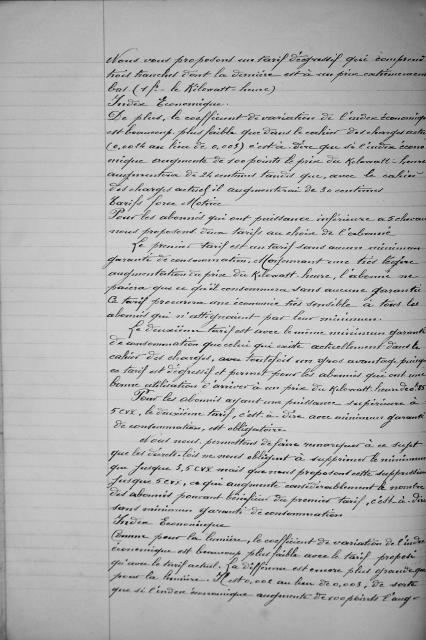 Nous vous proposons un tarif dégressif qui comprend
trois tranches dont la dernière est à un prix extrêmement
bas (1 fr. le Kilowatt-heure)
Index Economique.
De plus, le coefficient de variation de l'index économique
est beaucoup plus faible que dans le cahier des charges actuel
(0,0024 au lieu de 0,003) c'est à dire que si l'index écono
mique augmente de 100 points le prix du Kilowatt-heure
augmentera de 24 centimes tandis que, avec le cahier
des charges actuel, il augmenterait de 30 centimes
Tarifs force Motrice
Pour les abonnés qui ont puissance inférieure à 5 chevaux
nous proposons deux tarifs au choix de l'abonné
Le premier tarif est un tarif sans aucun minimum
garanti de consommation. Moyennant une très légère
augmentation du prix du Kilowatt-heure, l'abonné ne
paiera que ce qu'il consommera sans aucune garantie
Ce tarif procurera une économie très sensible à tous les
abonnés qui n'atteignaient pas leur minimum
Le deuxième tarif est avec le même minimum garanti
de consommation que celui qui existe actuellement dans le
cahier des charges, avec toutefois un gros avantage puisque
ce tarif est dégressif et permet pour les abonnés qui ont une
bonne utilisation d'arriver à un prix du Kilowatt-heure de
Pour les abonnés ayant une puissance supérieure à
5 cvx, le deuxième tarif, c'est à dire avec minimum garanti
de consommation, est obligatoire
Nous nous permettons de faire remarquer à ce sujet
que les décrets-lois ne vous obligent à supprimer le minimum
que jusque 3,5 cvx mais que nous proposons cette suppression
jusque 5 cvx, ce qui augmente considérablement le nombre
des abonnés pouvant bénéficier du premier tarif, c'est-à-dire
sans minimum garanti de consommation
Index Economique
Comme pour la lumière, le coefficient de variation de l'index
économique est beaucoup plus faible avec le tarif proposé
qu'avec le tarif actuel. La différence est encore plus grande que
pour la lumière. Il est 0,002 au lieu de 0,003, de sorte
que si l'index économique augmente de 100 points l'aug-